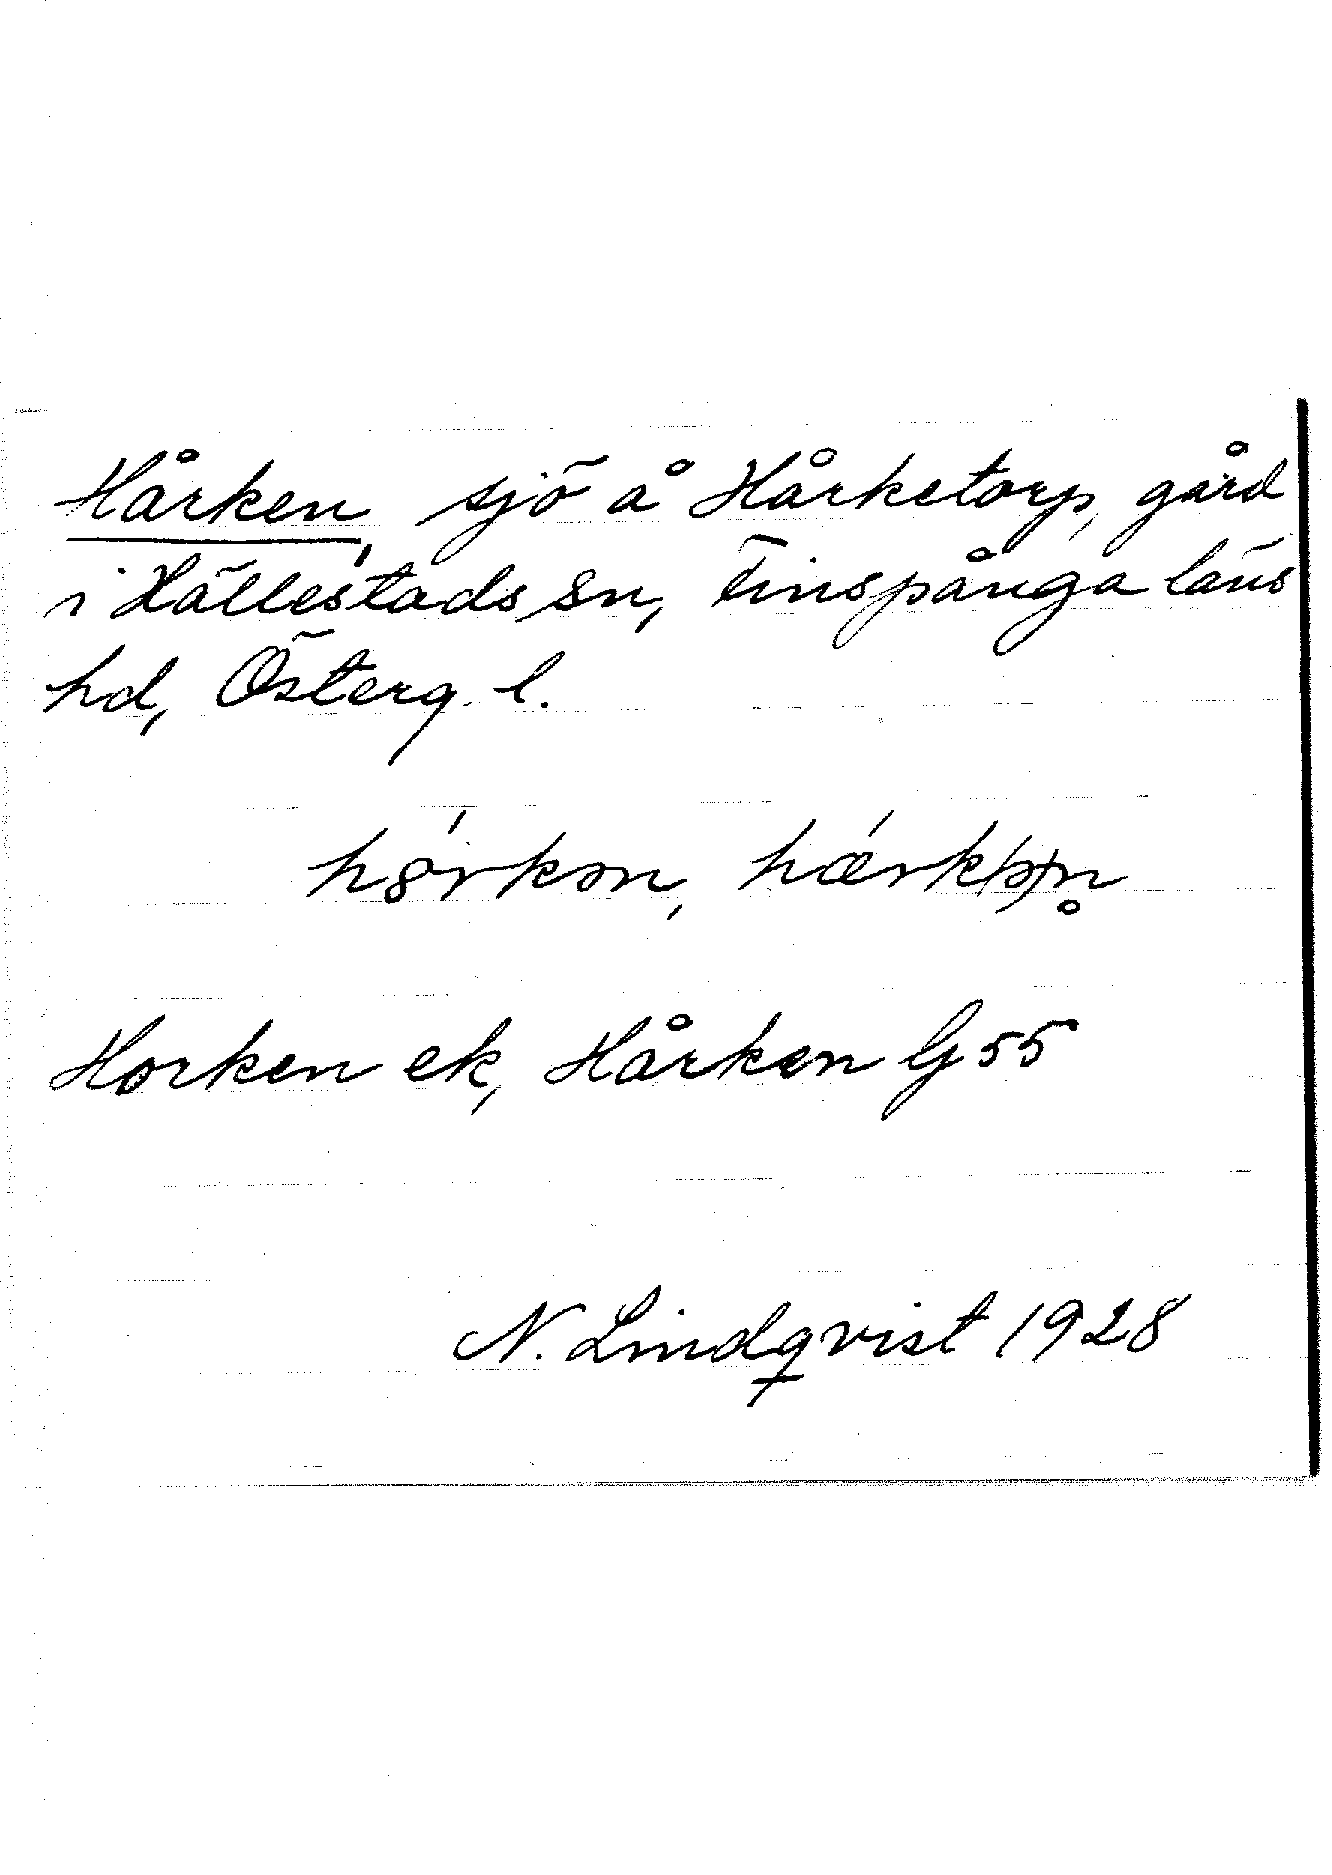 Hårken, sjö å Hårketorp, gård
i Hällestads sn, Finspånga läns
hd, Österg. l.
Horken ek, Hårken G 55
N. Lindqvist 1928